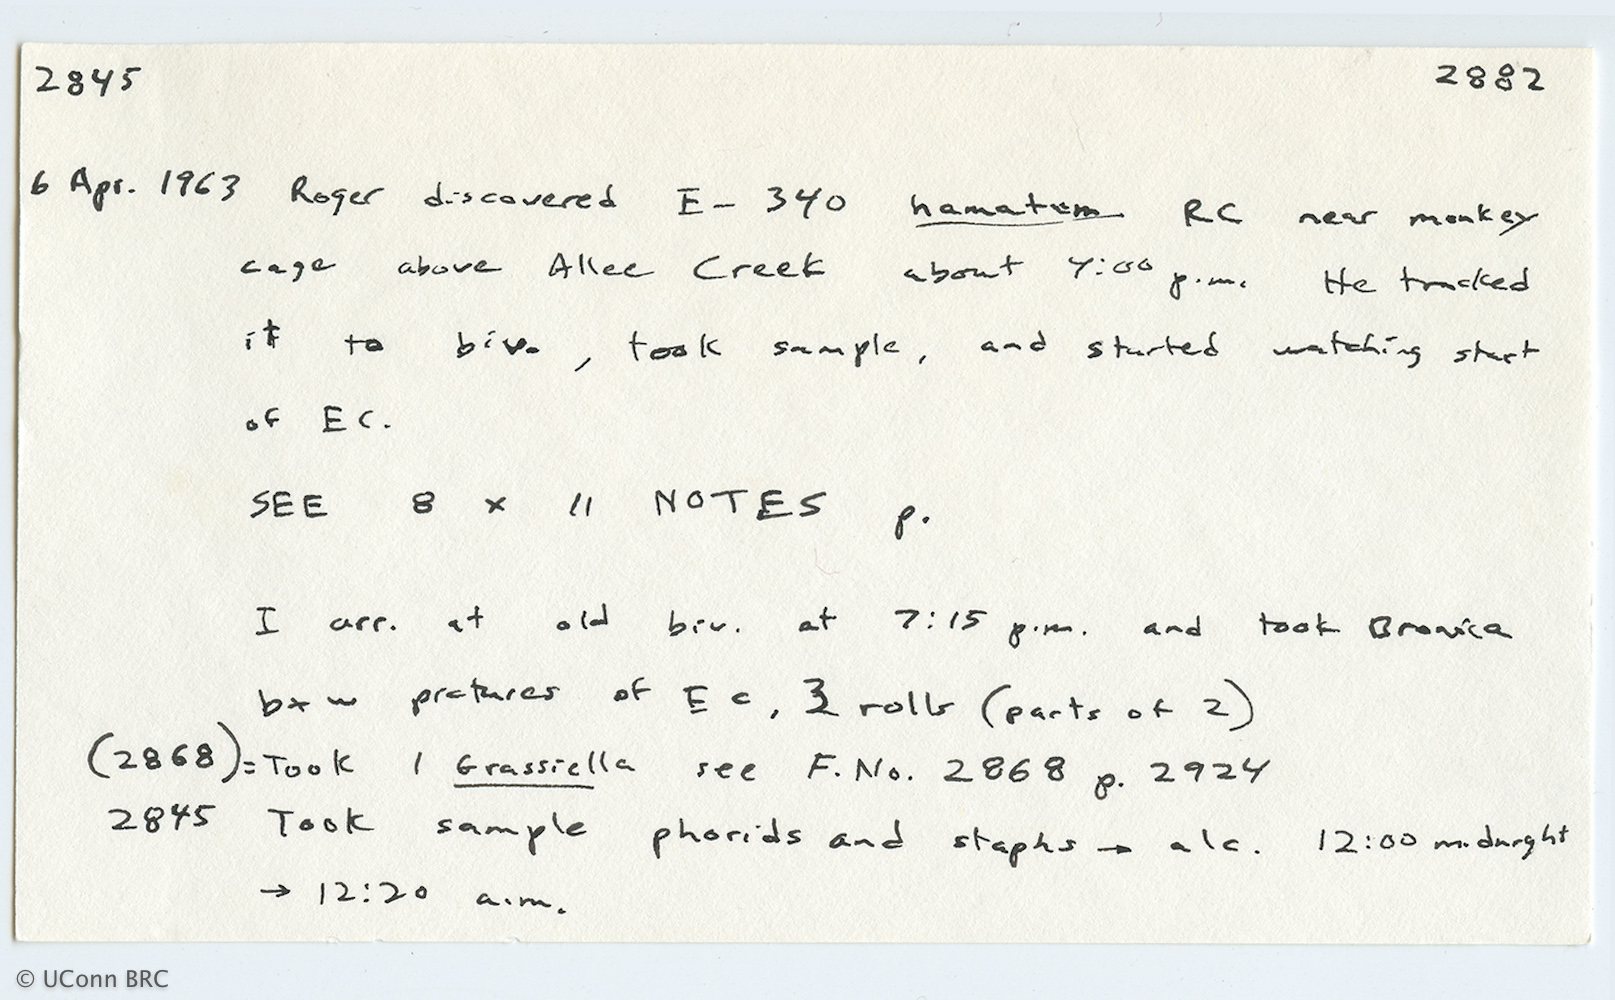 2845 2882
6 Apr. 1963 Roger discovered E-340 hamatum RC near monkey
cage above Allee Creek about 7:00 p.m. He tracked
it to biv., took sample, and started watching start
of EC.
SEE 8 x 11 NOTES p.
I arr. at old biv. at 7:15 p.m. and took Bronica
b+w pictures of EC, 3 rolls (parts of 2)
(2868)= Took 1 Grassiella see F. No. 2868 p. 2924
2845 Took sample phorids and staphs → alc. 12:00 midnight
→ 12:20 a.m.
© UConn BRC